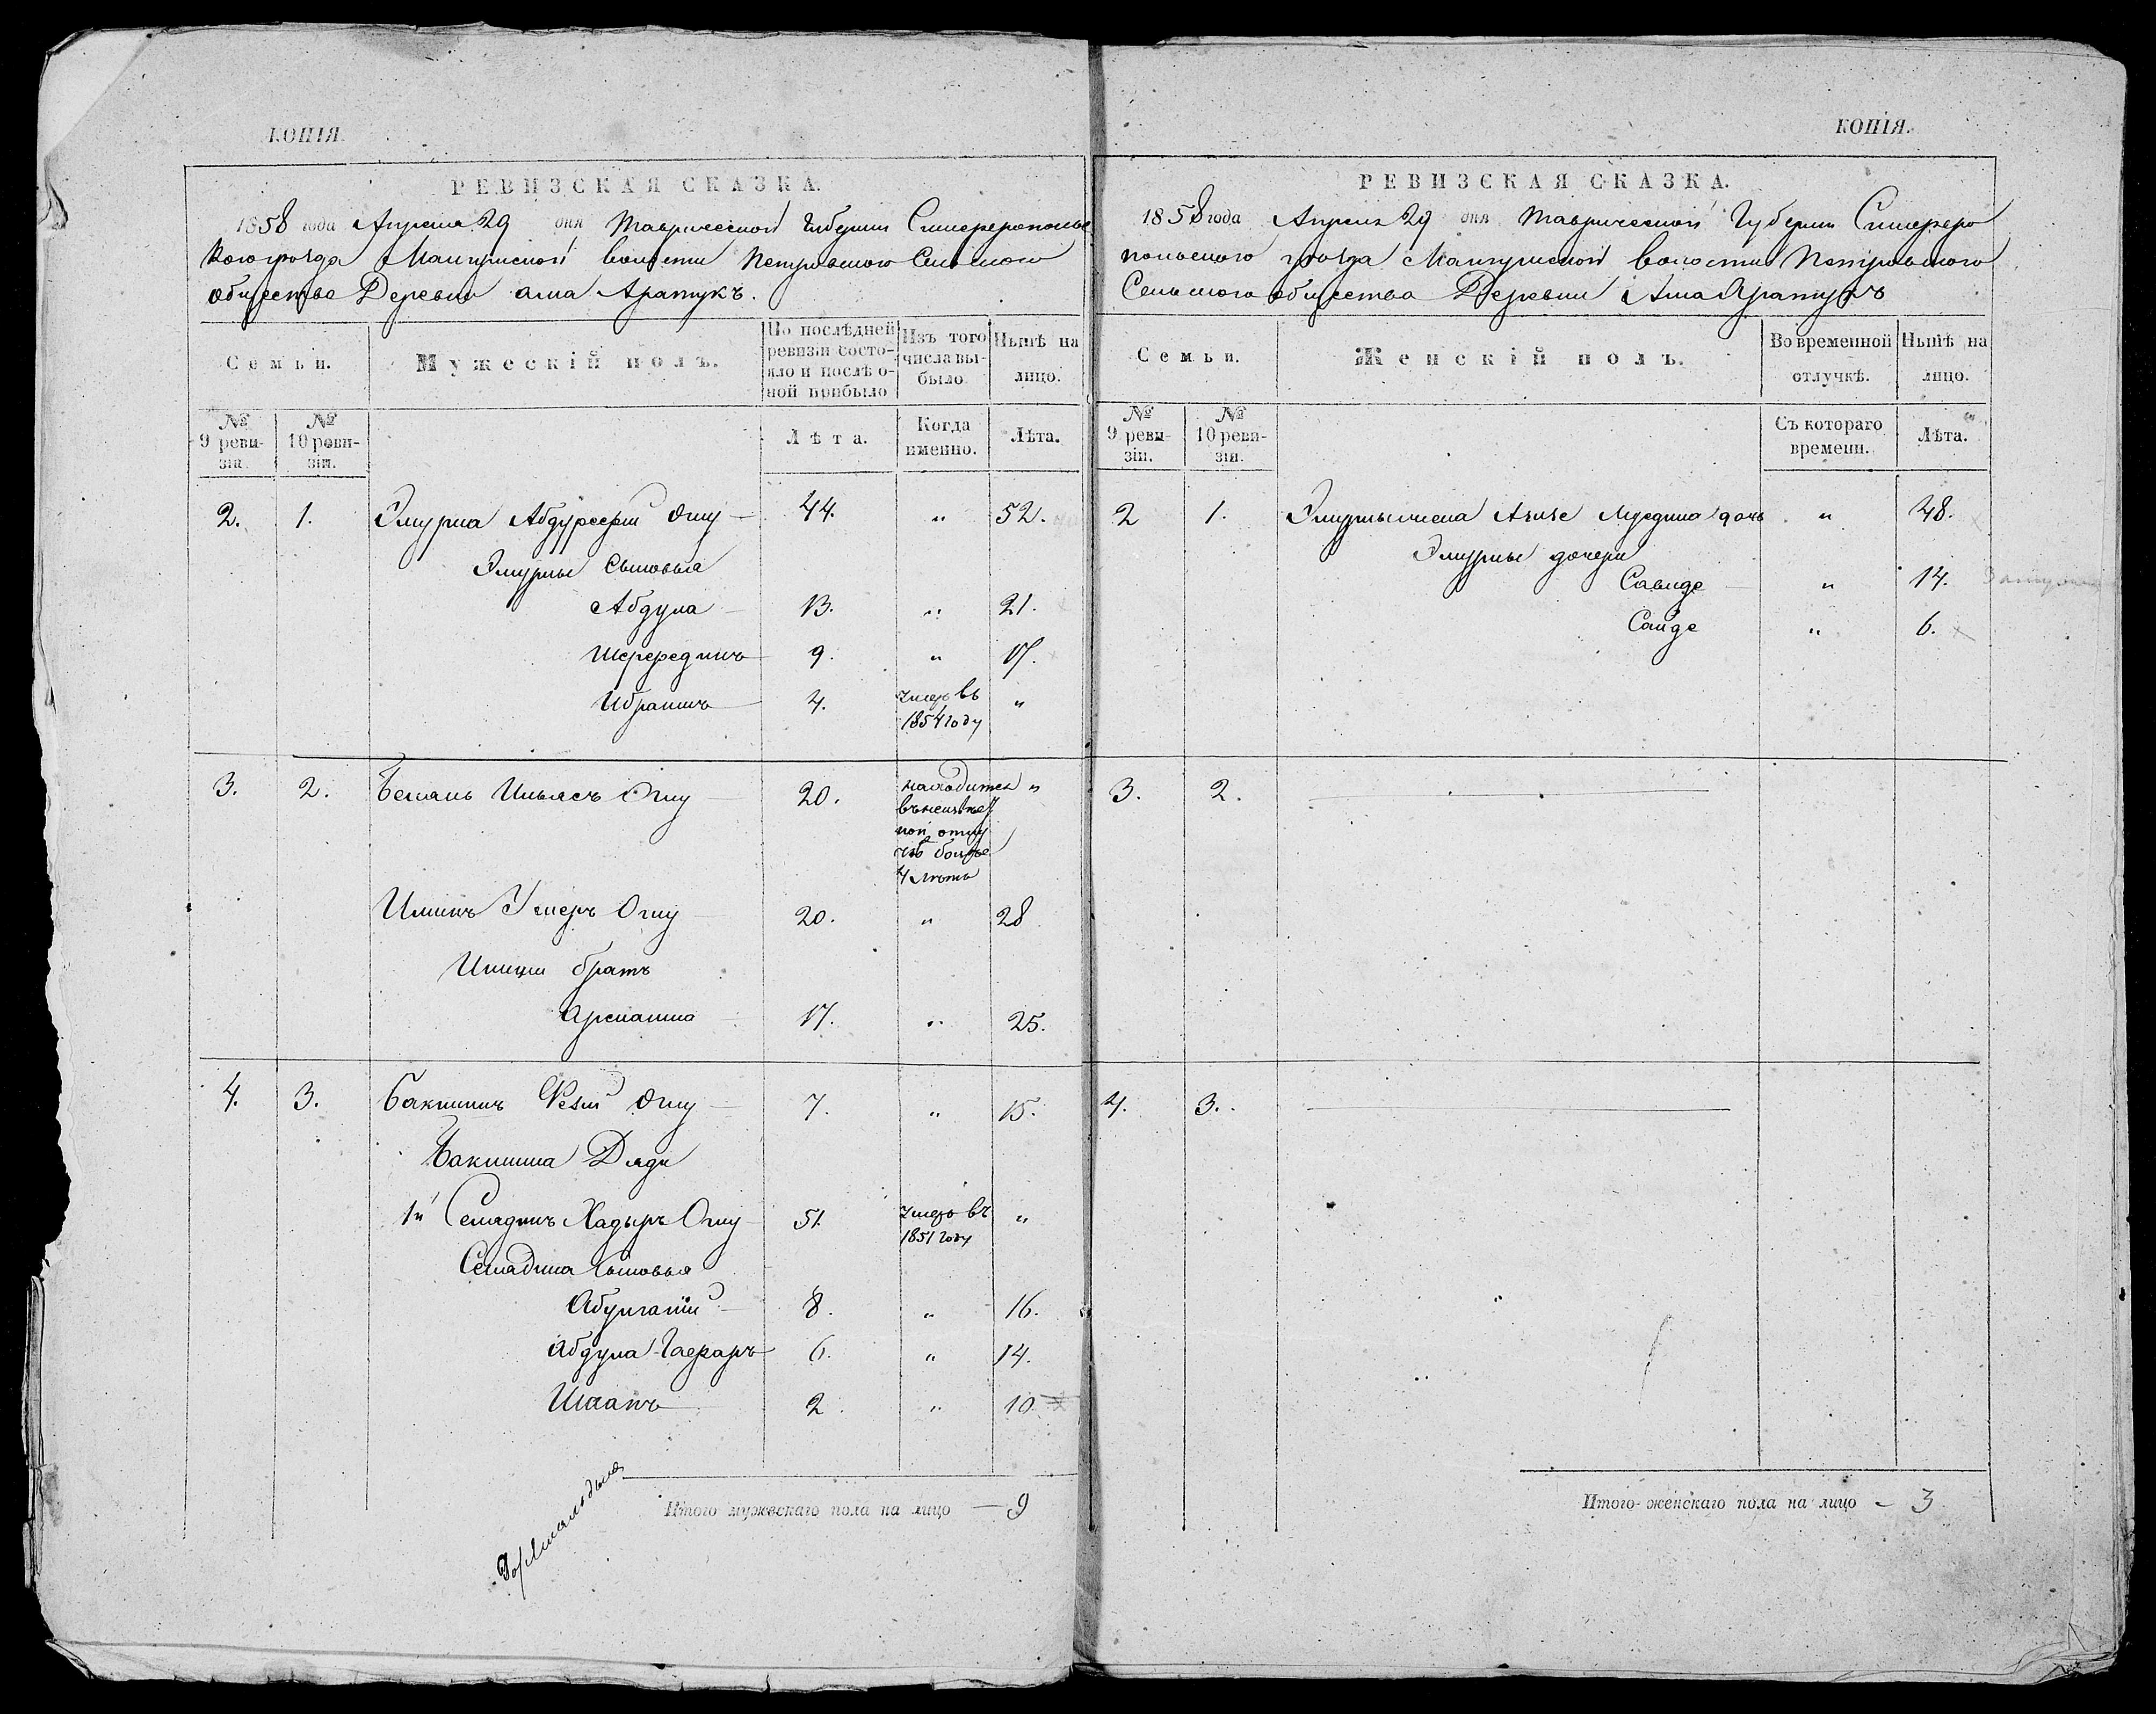 КОПІЯ.
РЕВИЗСКАЯ СКАЗКА.
1858 года Апреля 29 дня Таврической Губерніи Симферопольс
кого уѣзда Мангушской волости Петровского Сельского
общества Деревни Алма Аратукъ.
Семьи. Мужескій полъ. По послѣдней ревизіи состояло и послѣ оной прибыло Изъ того числа выбыло. Нынѣ на лицо.
№ 9 ревизіи. № 10 ревизіи. Лѣта. Когда именно. Лѣта.
2. 1. Эмурла Абдурсефи Оглу 44. " 52.
Эмурлы Сыновья
Абдула 13. " 21.
Шерфединъ 9. " 17.
Ибраимъ 4. умеръ въ "
1854 году
3. 2. Белялъ Ильясъ Оглу 20. находится "
въ неизвѣст
ной отлу
чкѣ болѣе
4 лѣтъ
Иминъ Умеръ Оглу 20. " 28
Имина братъ
Арсланша 17. " 25.
4. 3. Бакишъ Оглу 7. " 15.
Бакиша Дяди
1й Селядинъ Хадыръ Оглу 51 умеръ въ "
1851 году
Селядина Сыновья
Абулгани 8. " 16.
Абдула Гафаръ 6. " 14.
Шаапъ 2. " 10
Итого мужескаго пола на лицо — 9
КОПІЯ.
РЕВИЗСКАЯ СКАЗКА.
1858 года Апреля 29 дня Таврической Губерніи Симферо
польского уѣзда Мангушской волости Петровского
Сельского общества Деревни Алма Аратукъ
Семьи. Женскій полъ. Во временной отлучкѣ. Нынѣ на лицо.
№ 9 ревизіи. № 10 ревизіи. Съ котораго времени. Лѣта.
2 1. Эмурлы жена Азизе дочь " 48.
Эмурлы дочери
Савиде " 14.
Саиде " 6.
3. 2.
4. 3.
Итого женскаго пола на лицо — 3